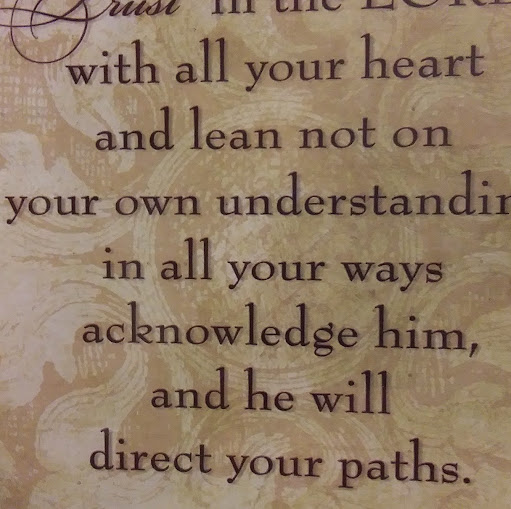 Trust in the LORD
with all your heart
and lean not on
your own understandin
in all your ways
acknowledge him,
and he will
direct your paths.